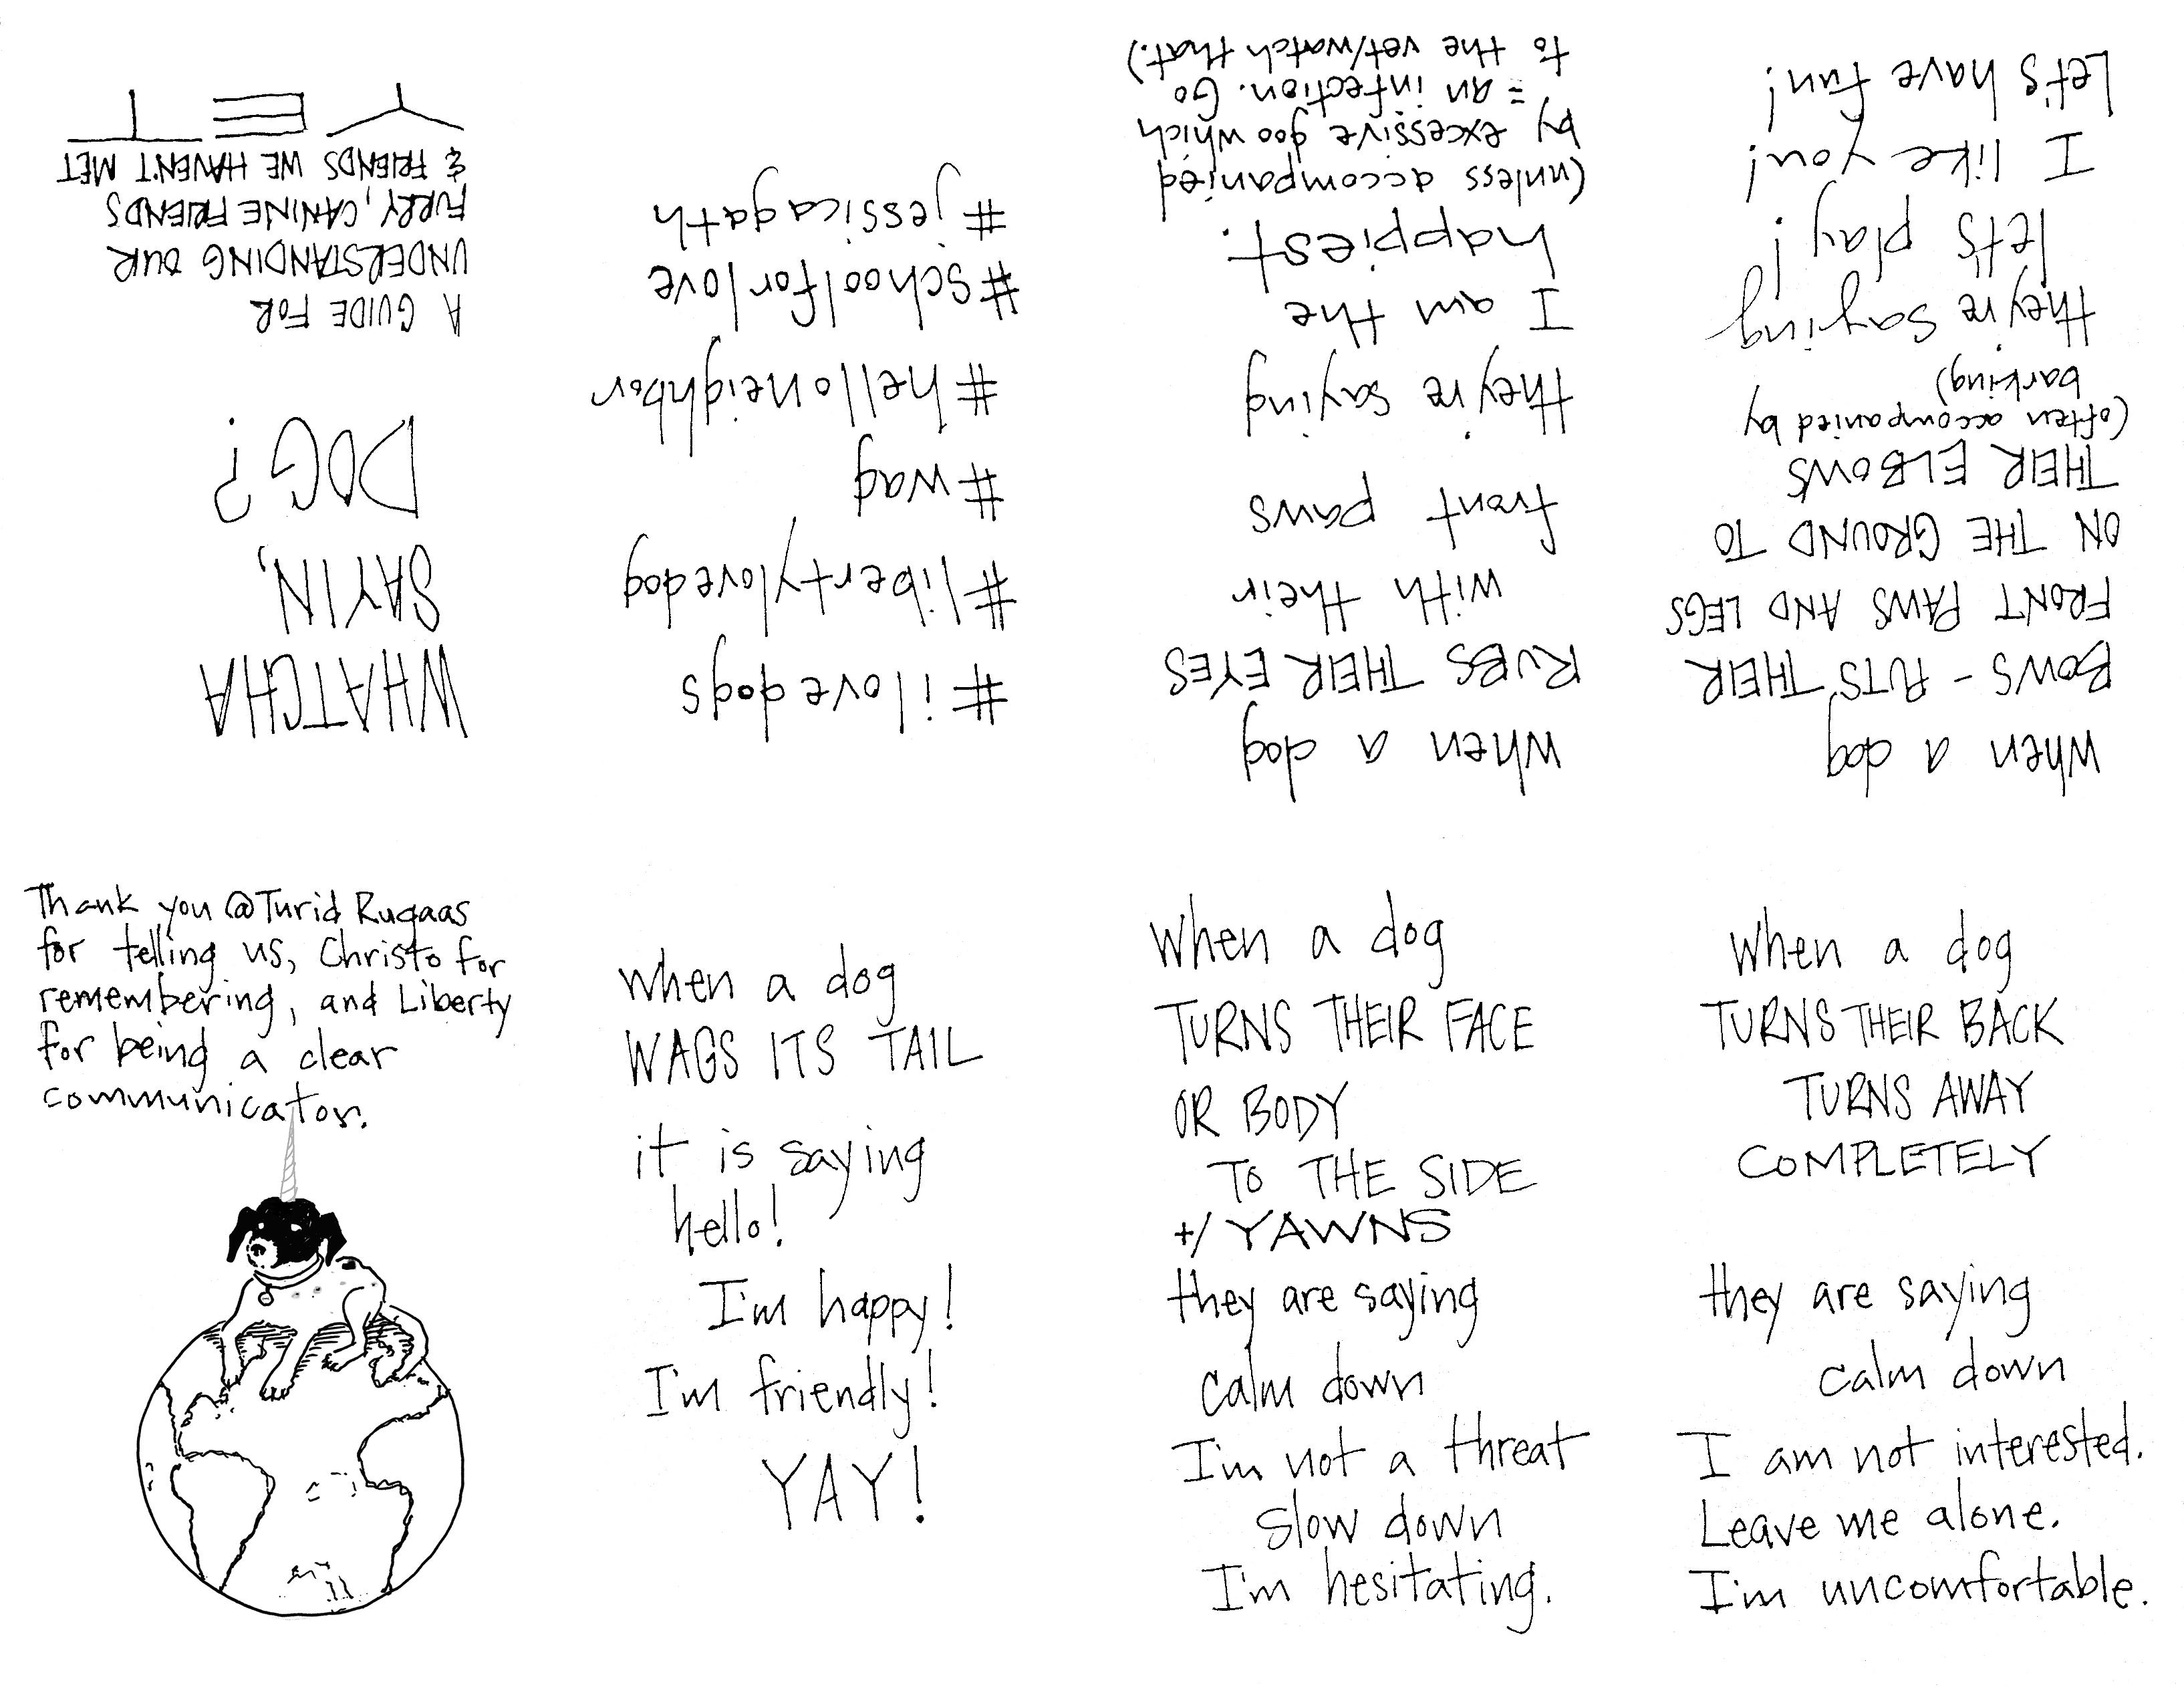 WHATCHA
SAYIN,
DOG?
A GUIDE FOR
UNDERSTANDING OUR
FURRY, CANINE FRIENDS
& FRIENDS WE HAVEN'T MET
Thank you @Turid Rugaas
for telling us, Christo for
remembering, and Liberty
for being a clear
communicator.
when a dog
WAGS ITS TAIL
it is saying
hello!
I'm happy!
I'm friendly!
YAY!
when a dog
TURNS THEIR FACE
OR BODY
TO THE SIDE
+/ YAWNS
they are saying
calm down
I'm not a threat
slow down
I'm hesitating.
when a dog
TURNS THEIR BACK
TURNS AWAY
COMPLETELY
they are saying
calm down
I am not interested.
Leave me alone.
I'm uncomfortable.
when a dog
BOWS - PUTS THEIR
FRONT PAWS AND LEGS
ON THE GROUND TO
THEIR ELBOWS
(often accompanied by
barking)
they're saying
let's play!
I like you!
Let's have fun!
when a dog
RUBS THEIR EYES
with their
front paws
they're saying
I am the
happiest.
(unless accompanied
by excessive goo which
= an infection. Go
to the vet/watch that.)
#ilovedogs
#libertylovedog
#wag
#helloneighbor
#schoolforlove
#jessicagath